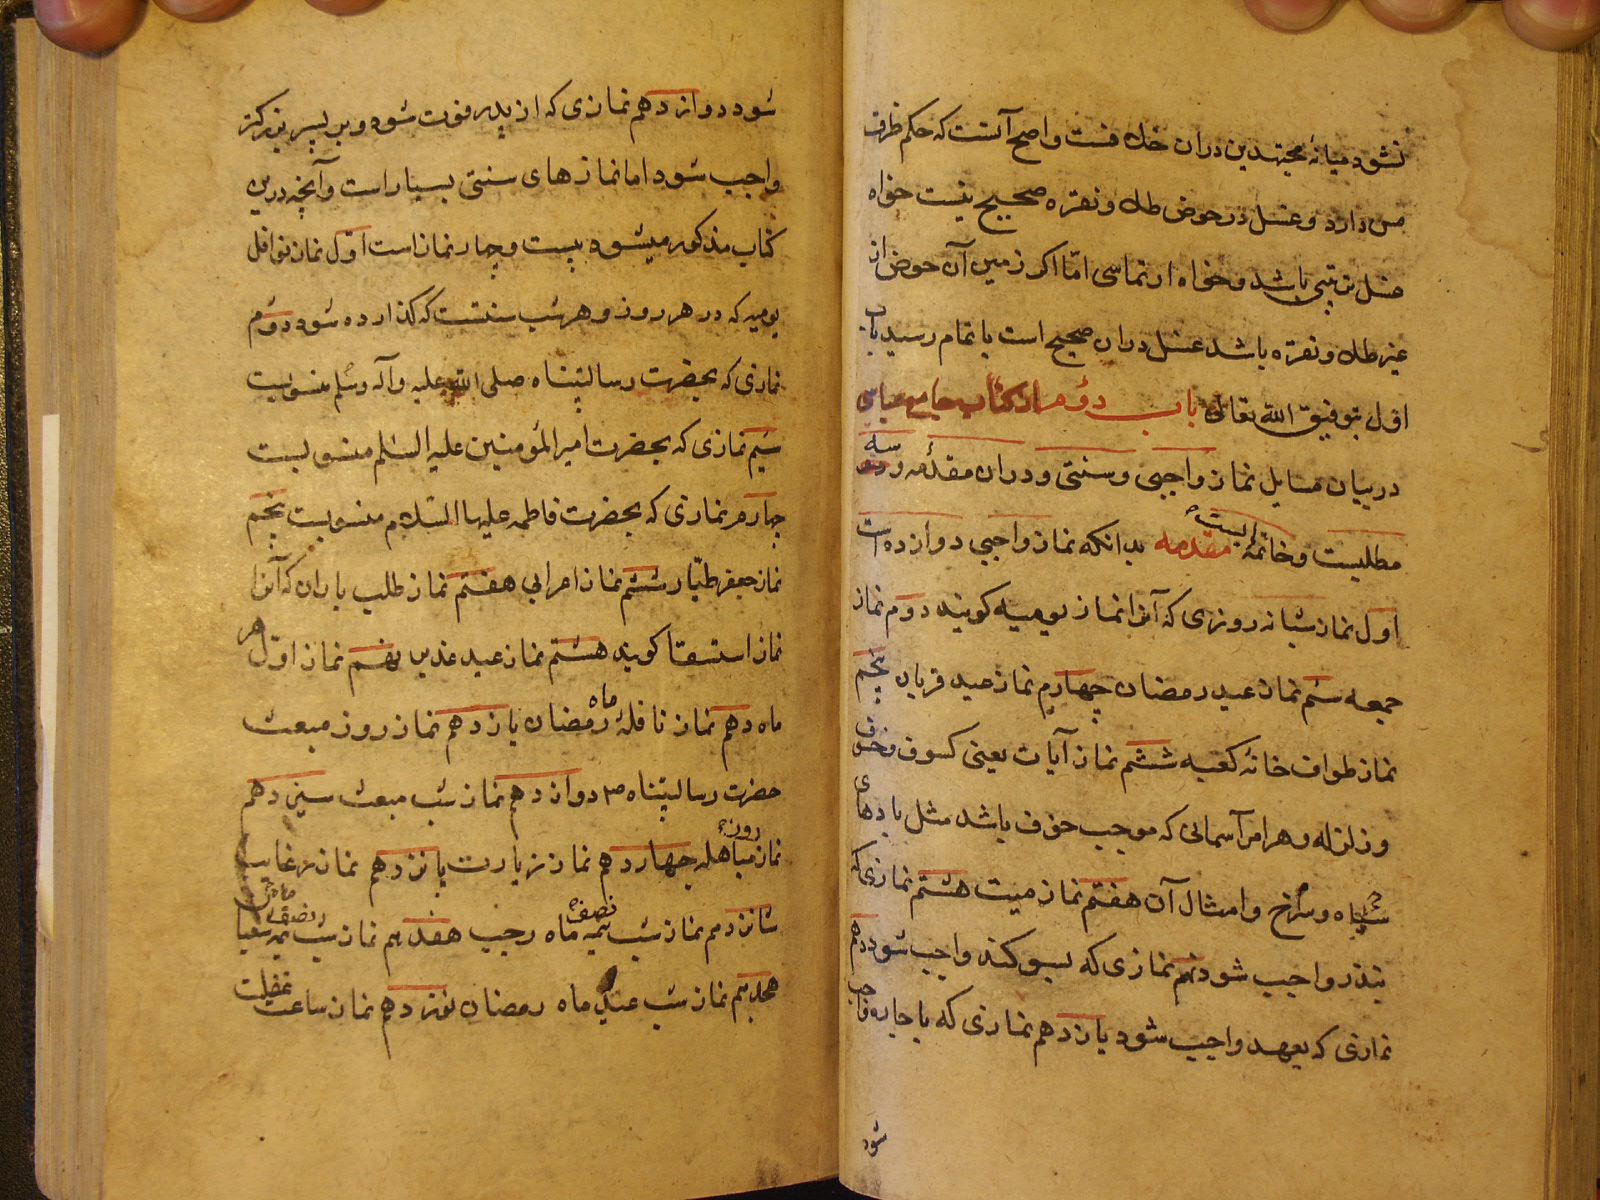 نشود میانهٔ مجتهدین دران خلاف است و اصح آنست که حکم ظرف
مس دارد و غسل در حوض طلا و نقره صحیح نیست خواه
غسل ترتیبی باشد و خواه ارتماسی امّا اکر زمین آن حوض از
غیر طلا و نقره باشد غسل دران صحیح است باتمام رسید باب
اول بتوفیق الله تعالی باب دوم از کتاب جامع عباسی
در بیان مسایل نماز واجبی و سنتی و دران مقدّمه و سه
مطلبست و خاتمهٔ ایست مقدمه بدانکه نماز واجبی دوازده است
اول نماز شبانه روزی که آنرا نماز یومیه کویند دوم نماز
جمعه سیم نماز عید رمضان چهارم نماز عید قربان پنجم
نماز طواف خانهٔ کعبه ششم نماز آیات یعنی کسوف و خسوف
و زلزله و هر امر آسمانی که موجب خوف باشد مثل بادهای
سیاه و سرخ و امثال آن هفتم نماز میت هشتم نمازی که
بنذر واجب شود نهم نمازی که بسوکند واجب شود دهم
نمازی که بعهد واجب شود یازدهم نمازی که باجاره واجب
شود
شود دوازدهم نمازی که از پدر فوت شود و بر پسر بزرکتر
واجب شود اما نمازهای سنتی بسیار است و آنچه درین
کتاب مذکور میشود بیست و چهار نماز است اوّل نماز نوافل
یومیه که در هر روز و هر شب سنتست که کذارده شود دوّم
نمازی که بحضرت رسالتپناه صلی الله علیه و آله و سلم منسوبست
سیّم نمازی که بحضرت امیر المؤمنین علیه السلم منسوبست
چهارم نمازی که بحضرت فاطمه علیها السّلام منسوبست پنجم
نماز جعفر طیّار ششم نماز اعرابی هفتم نماز طلب باران که آنرا
نماز استسقا کویند هشتم نماز عید غدیر نهم نماز اوّل هر
ماه دهم نماز نافلهٔ ماه رمضان یازدهم نماز روز مبعث
حضرت رسالتپناه ص دوازدهم نماز شب مبعث سیزدهم
نماز روز مباهله چهاردهم نماز زیارت پانزدهم نماز رغایب
شانزدهم نماز شب نصف ماه رجب هفدهم نماز شب نیمه شعبان
هجدهم نماز شب عید ماه رمضان نوزدهم نماز ساعت غفلت